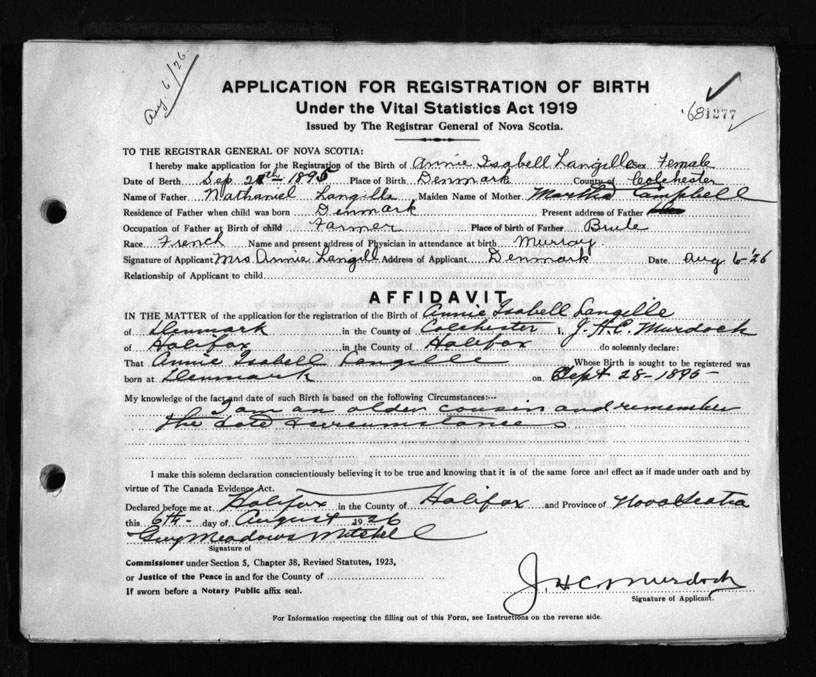 Aug. 6/26
APPLICATION FOR REGISTRATION OF BIRTH
Under the Vital Statistics Act 1919
Issued by The Registrar General of Nova Scotia.
1277
TO THE REGISTRAR GENERAL OF NOVA SCOTIA:
I hereby make application for the Registration of the Birth of Annie Isabell Langille Sex Female
Date of Birth Sep 28th 1895 Place of Birth Denmark County of Colchester
Name of Father Nathaniel Langille Maiden Name of Mother Martha Campbell
Residence of Father when child was born Denmark Present address of Father
Occupation of Father at Birth of child Farmer Place of birth of Father Brule
Race French Name and present address of Physician in attendance at birth Murray
Signature of Applicant Mrs Annie Langill Address of Applicant Denmark Date Aug 6-26
Relationship of Applicant to child
AFFIDAVIT
IN THE MATTER of the application for the registration of the Birth of Annie Isabell Langille
of Denmark in the County of Colchester I, J.H.C. Murdock
of Halifax in the County of Halifax do solemnly declare:
That Annie Isabell Langille Whose Birth is sought to be registered was
born at Denmark on Sept 28-1895
My knowledge of the fact and date of such Birth is based on the following Circumstances:—
I am an older cousin and remember
the date & circumstances
I make this solemn declaration conscientiously believing it to be true and knowing that it is of the same force and effect as if made under oath and by
virtue of The Canada Evidence Act.
Declared before me at Halifax in the County of Halifax and Province of Nova Scotia
this 6th- day of August 1926
Guy Meadows Mitchell
Signature of
Commissioner under Section 5, Chapter 38, Revised Statutes, 1923,
or Justice of the Peace in and for the County of
If sworn before a Notary Public affix seal.
J.H.C. Murdock
Signature of Applicant.
For Information respecting the filling out of this Form, see Instructions on the reverse side.